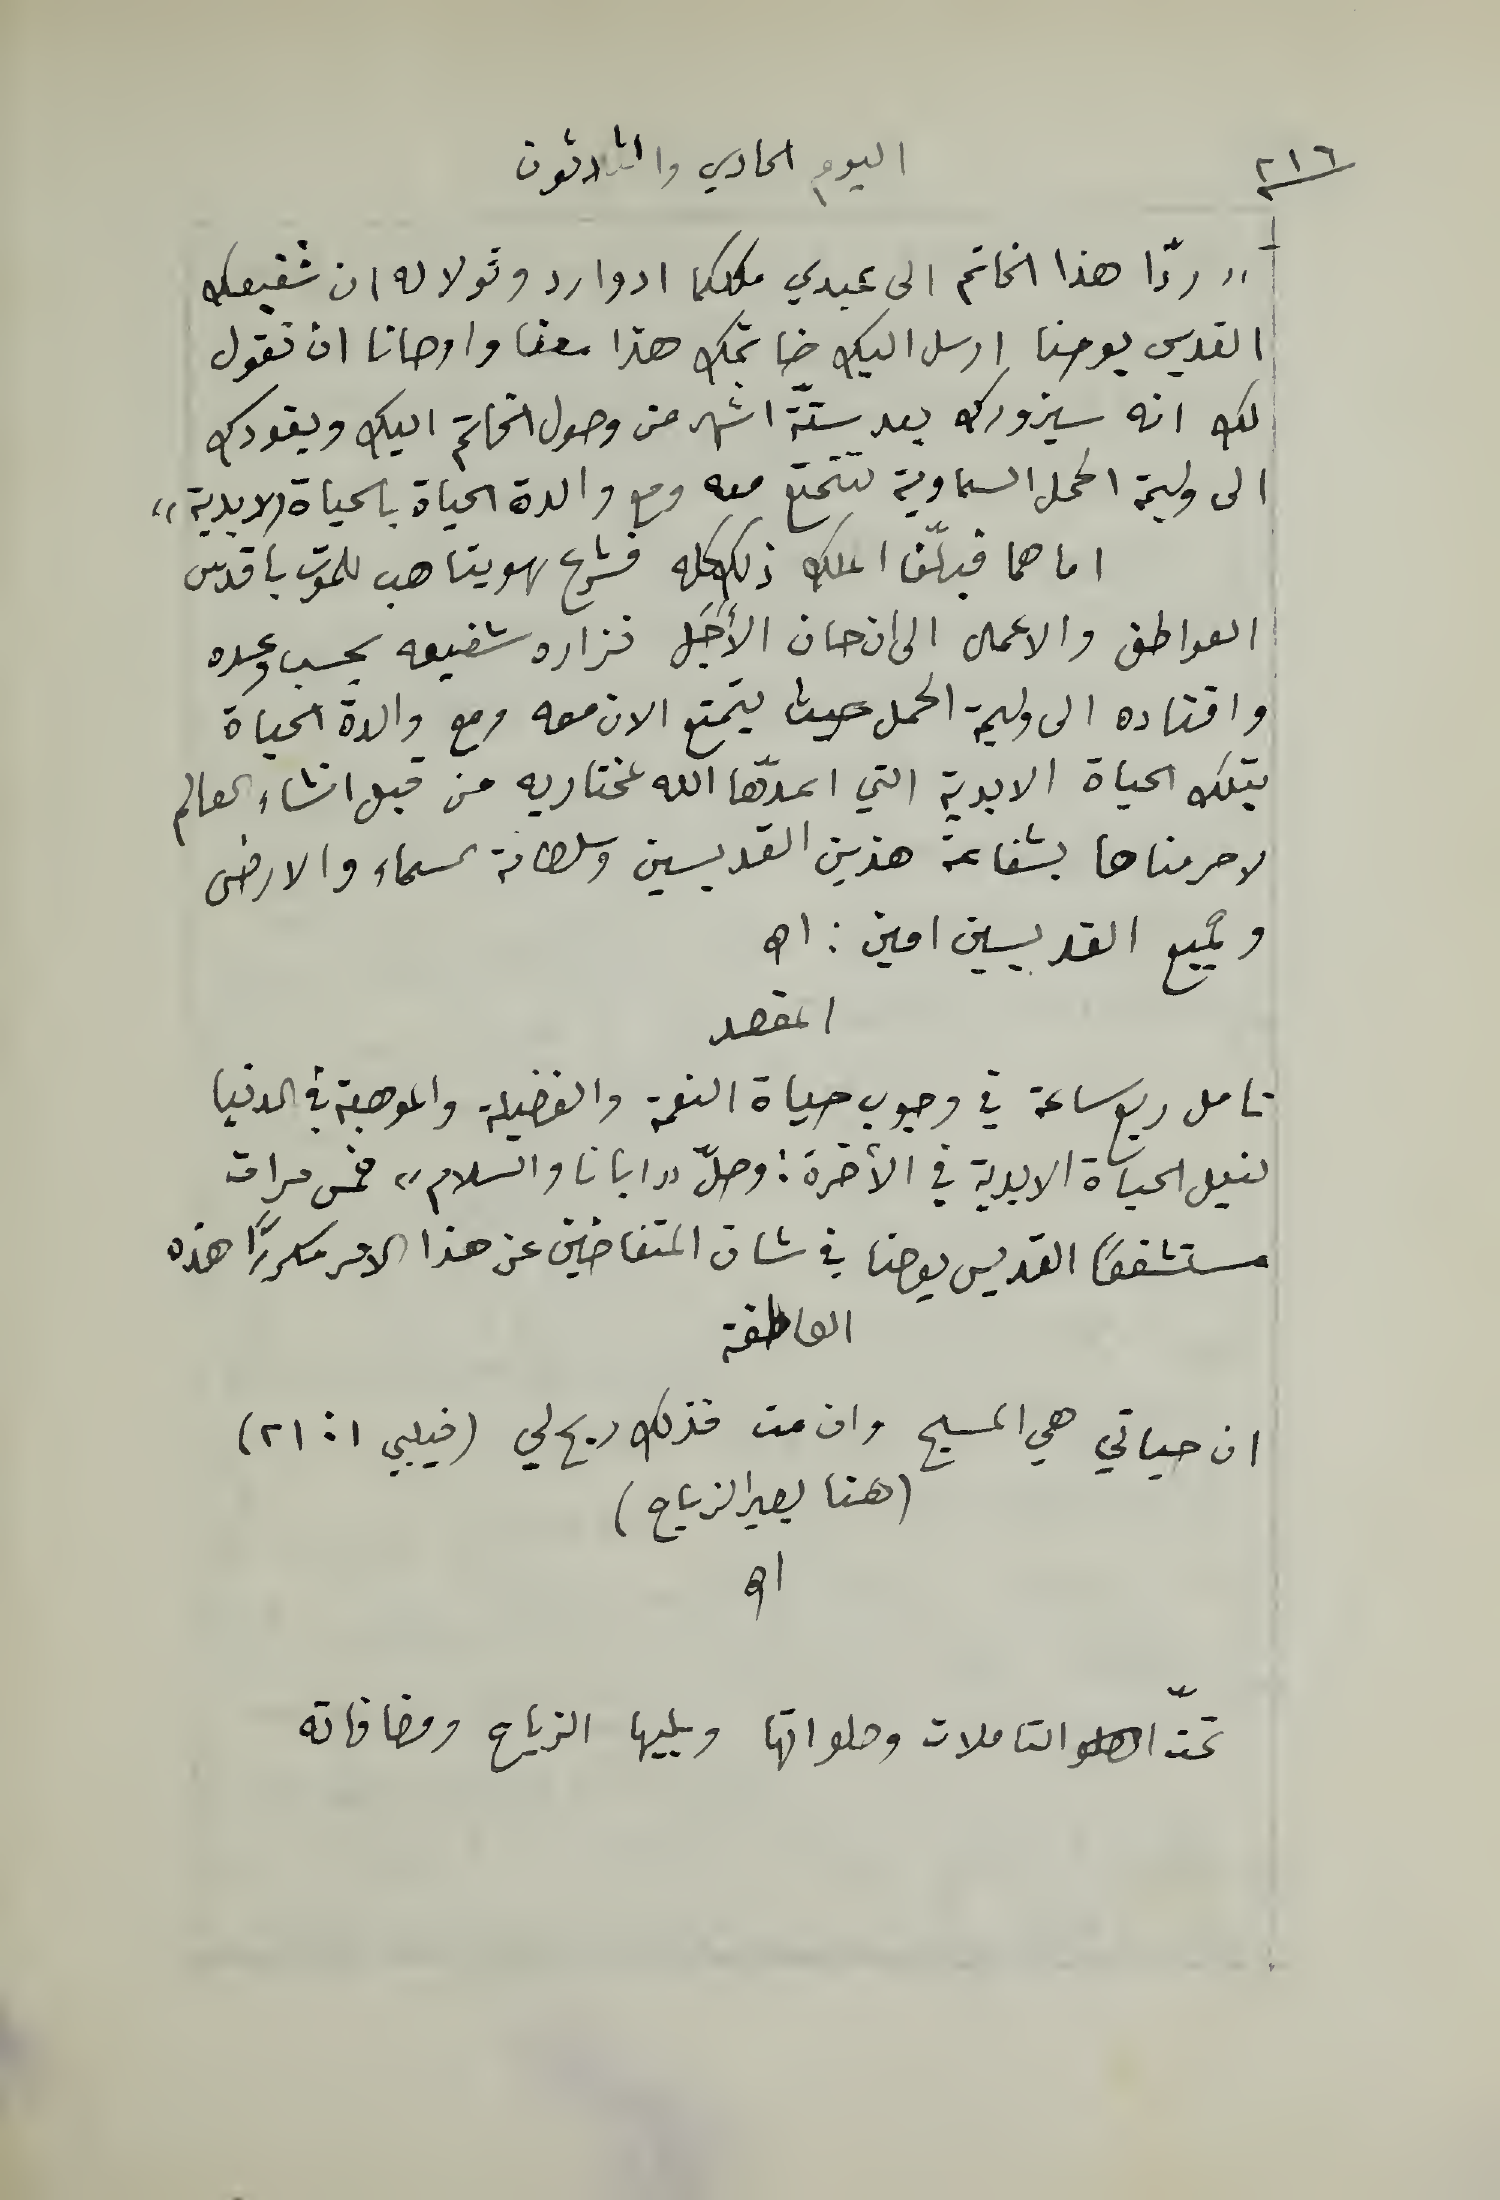 ٢١٦
اليوم الحادي والثلاثون
„ ردّا هذا الخاتم الى عبدي ملككما ادوارد وقولا له ان شفيعك
القديس يوحنا ارسل اليك خاتمك هذا معنا واوصانا ان نقول
لك انه سيزورك بعد ستّة اشهر من وصول الخاتم اليك ويقودك
الى وليمة الحمل السماوية لتتمتع معه ومع والدة الحياة بالحياة الابدية „
اما هما فبلّغا الملك ذلك كله فشرع هو يتاهب للموت باقدس
العواطف والاعمال الى ان حان الأجَل فزاره شفيعه بحسب وعده
واقتاده الى وليمة الحمل حيث يتمتع الان معه ومع والدة الحياة
بتلك الحياة الابدية التي اعدّها الله لمختاريه من قبل انشاء العالم
لا حرمناها بشفاعة هذين القديسين وسلطانة السماء والارض
وجميع القديسين امين : اه
المقصد
تامل ربع ساعة في وجوب حياة النعمة والفضيلة والموهبة في الدنيا
لنيل الحياة الابدية في الأخرة : وصلّ „ ابانا والسلام „ خمس مرات
مستشفعًا القديس يوحنا في شان المتغاضين عن هذا الامر مكررًا هذه
العاطفة
ان حياتي هي المسيح وان مت فذلك ربح لي (فيلبي ١ : ٢١)
(هنا يصير الزياح)
اه
تمّت التاملات وصلواتها ويليها الزياح ومضافاته